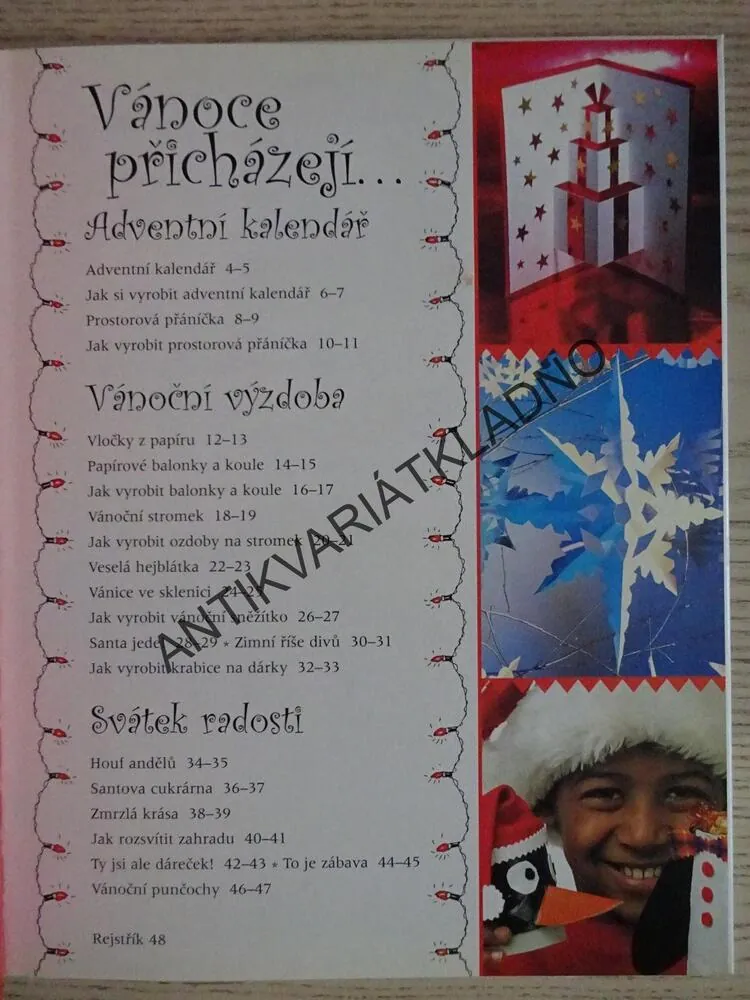 Vánoce
přicházejí...
Adventní kalendář
Adventní kalendář 4–5
Jak si vyrobit adventní kalendář 6–7
Prostorová přáníčka 8–9
Jak vyrobit prostorová přáníčka 10–11
Vánoční výzdoba
Vločky z papíru 12–13
Papírové balonky a koule 14–15
Jak vyrobit balonky a koule 16–17
Vánoční stromek 18–19
Jak vyrobit ozdoby na stromek 20–21
Veselá hejblátka 22–23
Vánice ve sklenici 24–25
Jak vyrobit vánoční sněžítko 26–27
Santa jede 28–29 * Zimní říše divů 30–31
Jak vyrobit krabice na dárky 32–33
Svátek radosti
Houf andělů 34–35
Santova cukrárna 36–37
Zmrzlá krása 38–39
Jak rozsvítit zahradu 40–41
Ty jsi ale dáreček! 42–43 * To je zábava 44–45
Vánoční punčochy 46–47
Rejstřík 48
ANTIKVARIÁTKLADNO